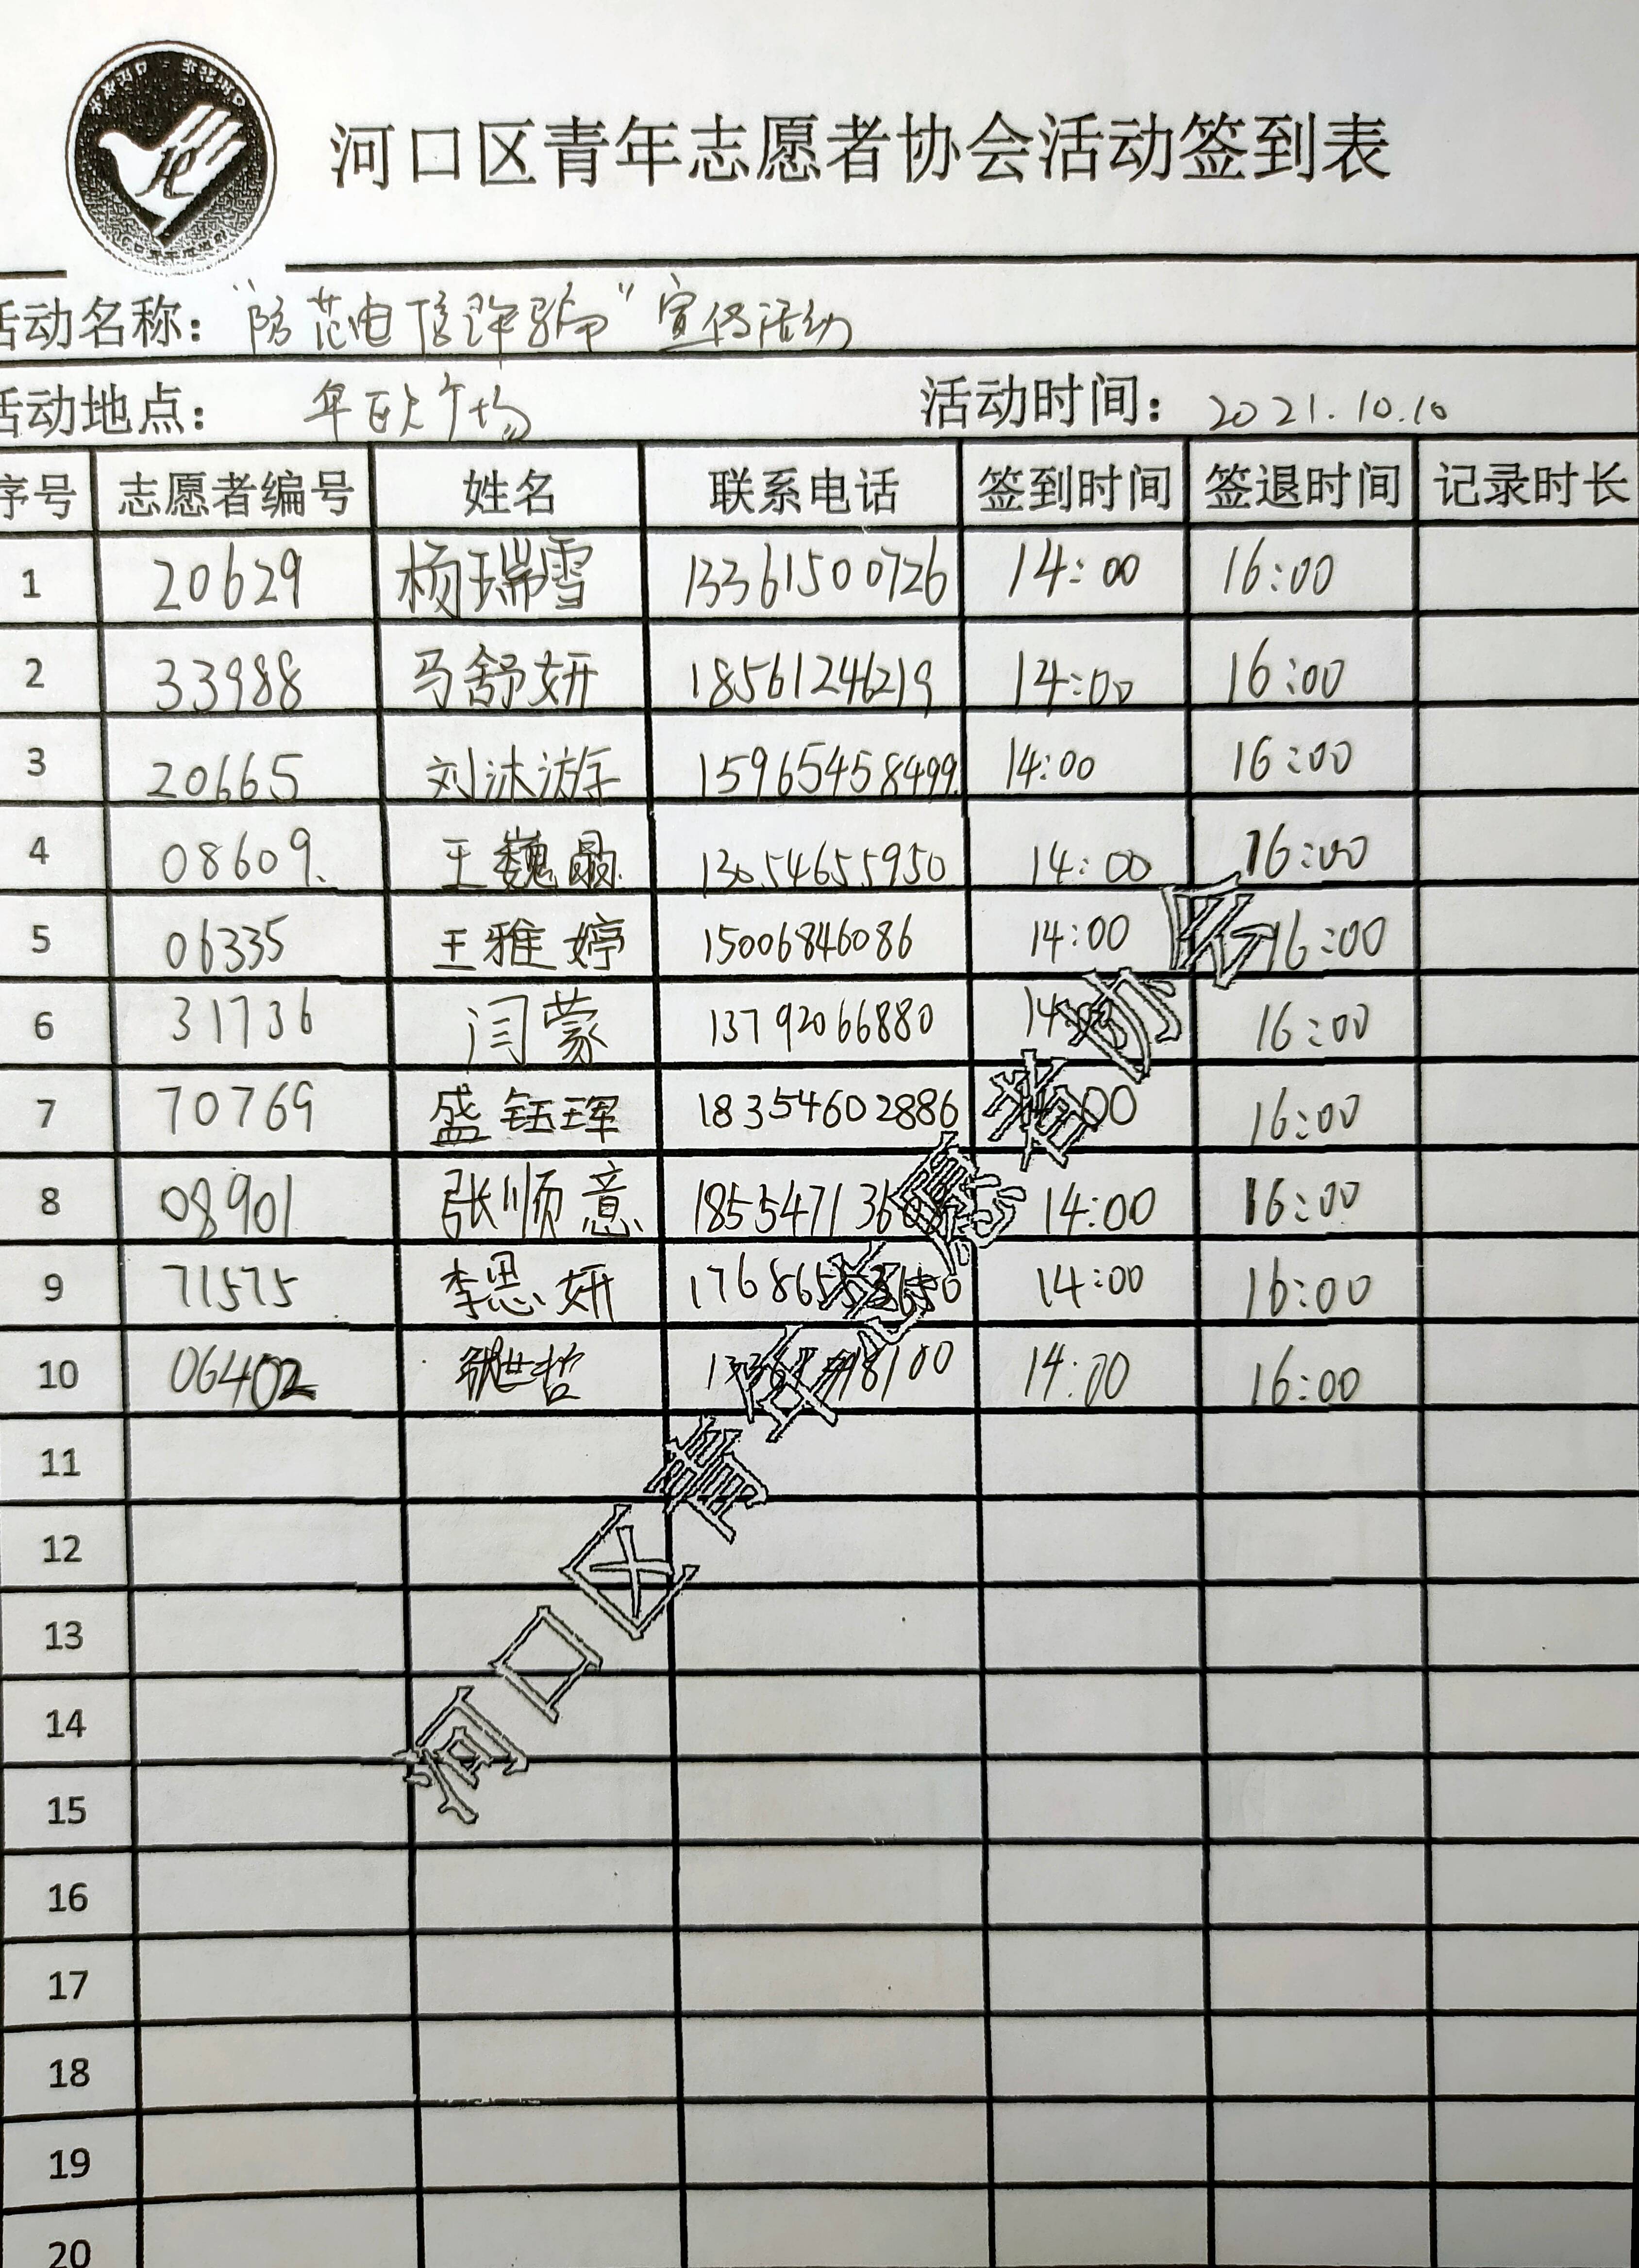 河口区青年志愿者协会活动签到表
活动名称：“防范电信诈骗”宣传活动
活动地点：
活动时间：2021.10.10
序号 志愿者编号 姓名 联系电话 签到时间 签退时间 记录时长
1 20629 杨瑞雪 13361500726 14:00 16:00
2 33988 马舒妍 18561246219 14:00 16:00
3 20665 刘沐游 15965458499 14:00 16:00
4 08609. 王巍 13054655950 14:00 16:00
5 06335 王雅婷 15006846086 14:00 16:00
6 31736 闫蒙 13792066880 16:00
7 70769 盛钰珲 18354602886 16:00
8 08901 张顺意 14:00 16:00
9 71575 李思妍 14:00 16:00
10 06402 张世哲 14:00 16:00
11
12
13
14
15
16
17
18
19
20
河口区青年志愿者协会